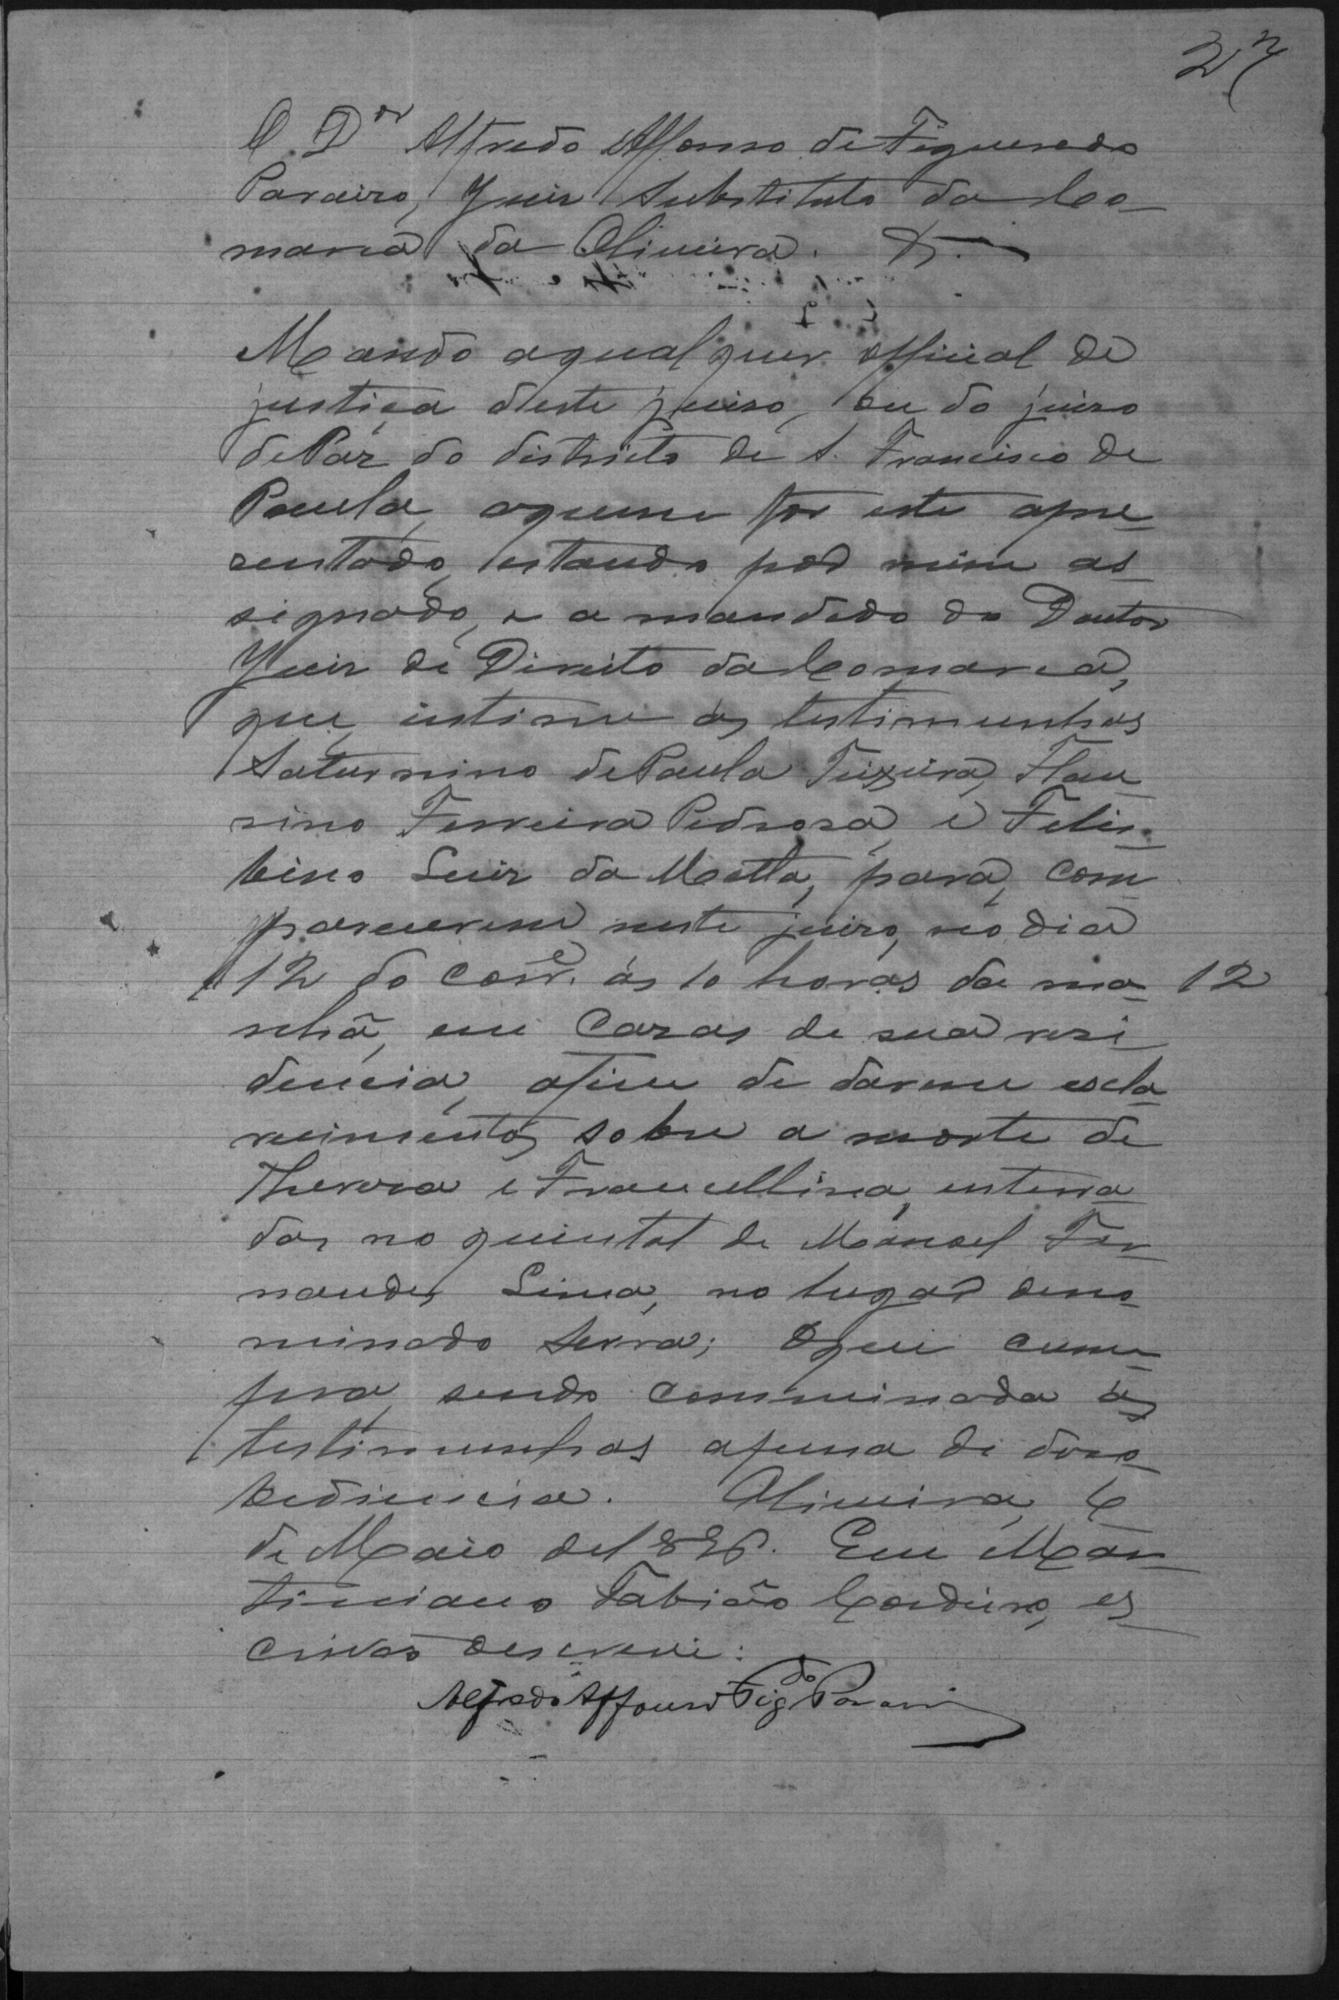 27
O Dor Alfredo Affonso de Figueredo
Paraizo, Juiz Substituto da Co-
marca da Oliveira. &.
Mando aqualquer official de
justiça deste juiso, ou do juizo
de Páz do districto de S. Francisco de
Paula, aquem for este apre-
zentado, estando por mim as-
signado, e a mandado do Doutor
Juiz de Direito da Comarca,
que intime as testimunhas
Saturnino de Paula Teixeira, Flau-
zino Ferreira Pedroza, e Felis-
bino Luiz da Motta, para, com-
parecerem neste juizo, no dia
12 do corre. ás 10 horas da ma- 12
nhã, em cazas de sua resi-
dencia, afim de darem escla-
recimentos sobre a morte de
Thereza e Francellina, enterra-
das no quintal de Manoel Fer-
nandes Lima, no lugar deno-
minado Serra; Oque cum-
pra, sendo comminada as
testimunhas apena de dezo-
bediencia. Oliveira, 6
de Maio de 1896. Eu Mar-
timiano Fabião Cordeiro, es-
crivão oescrevi:
Alfredo Affonso Figdo Paraiz